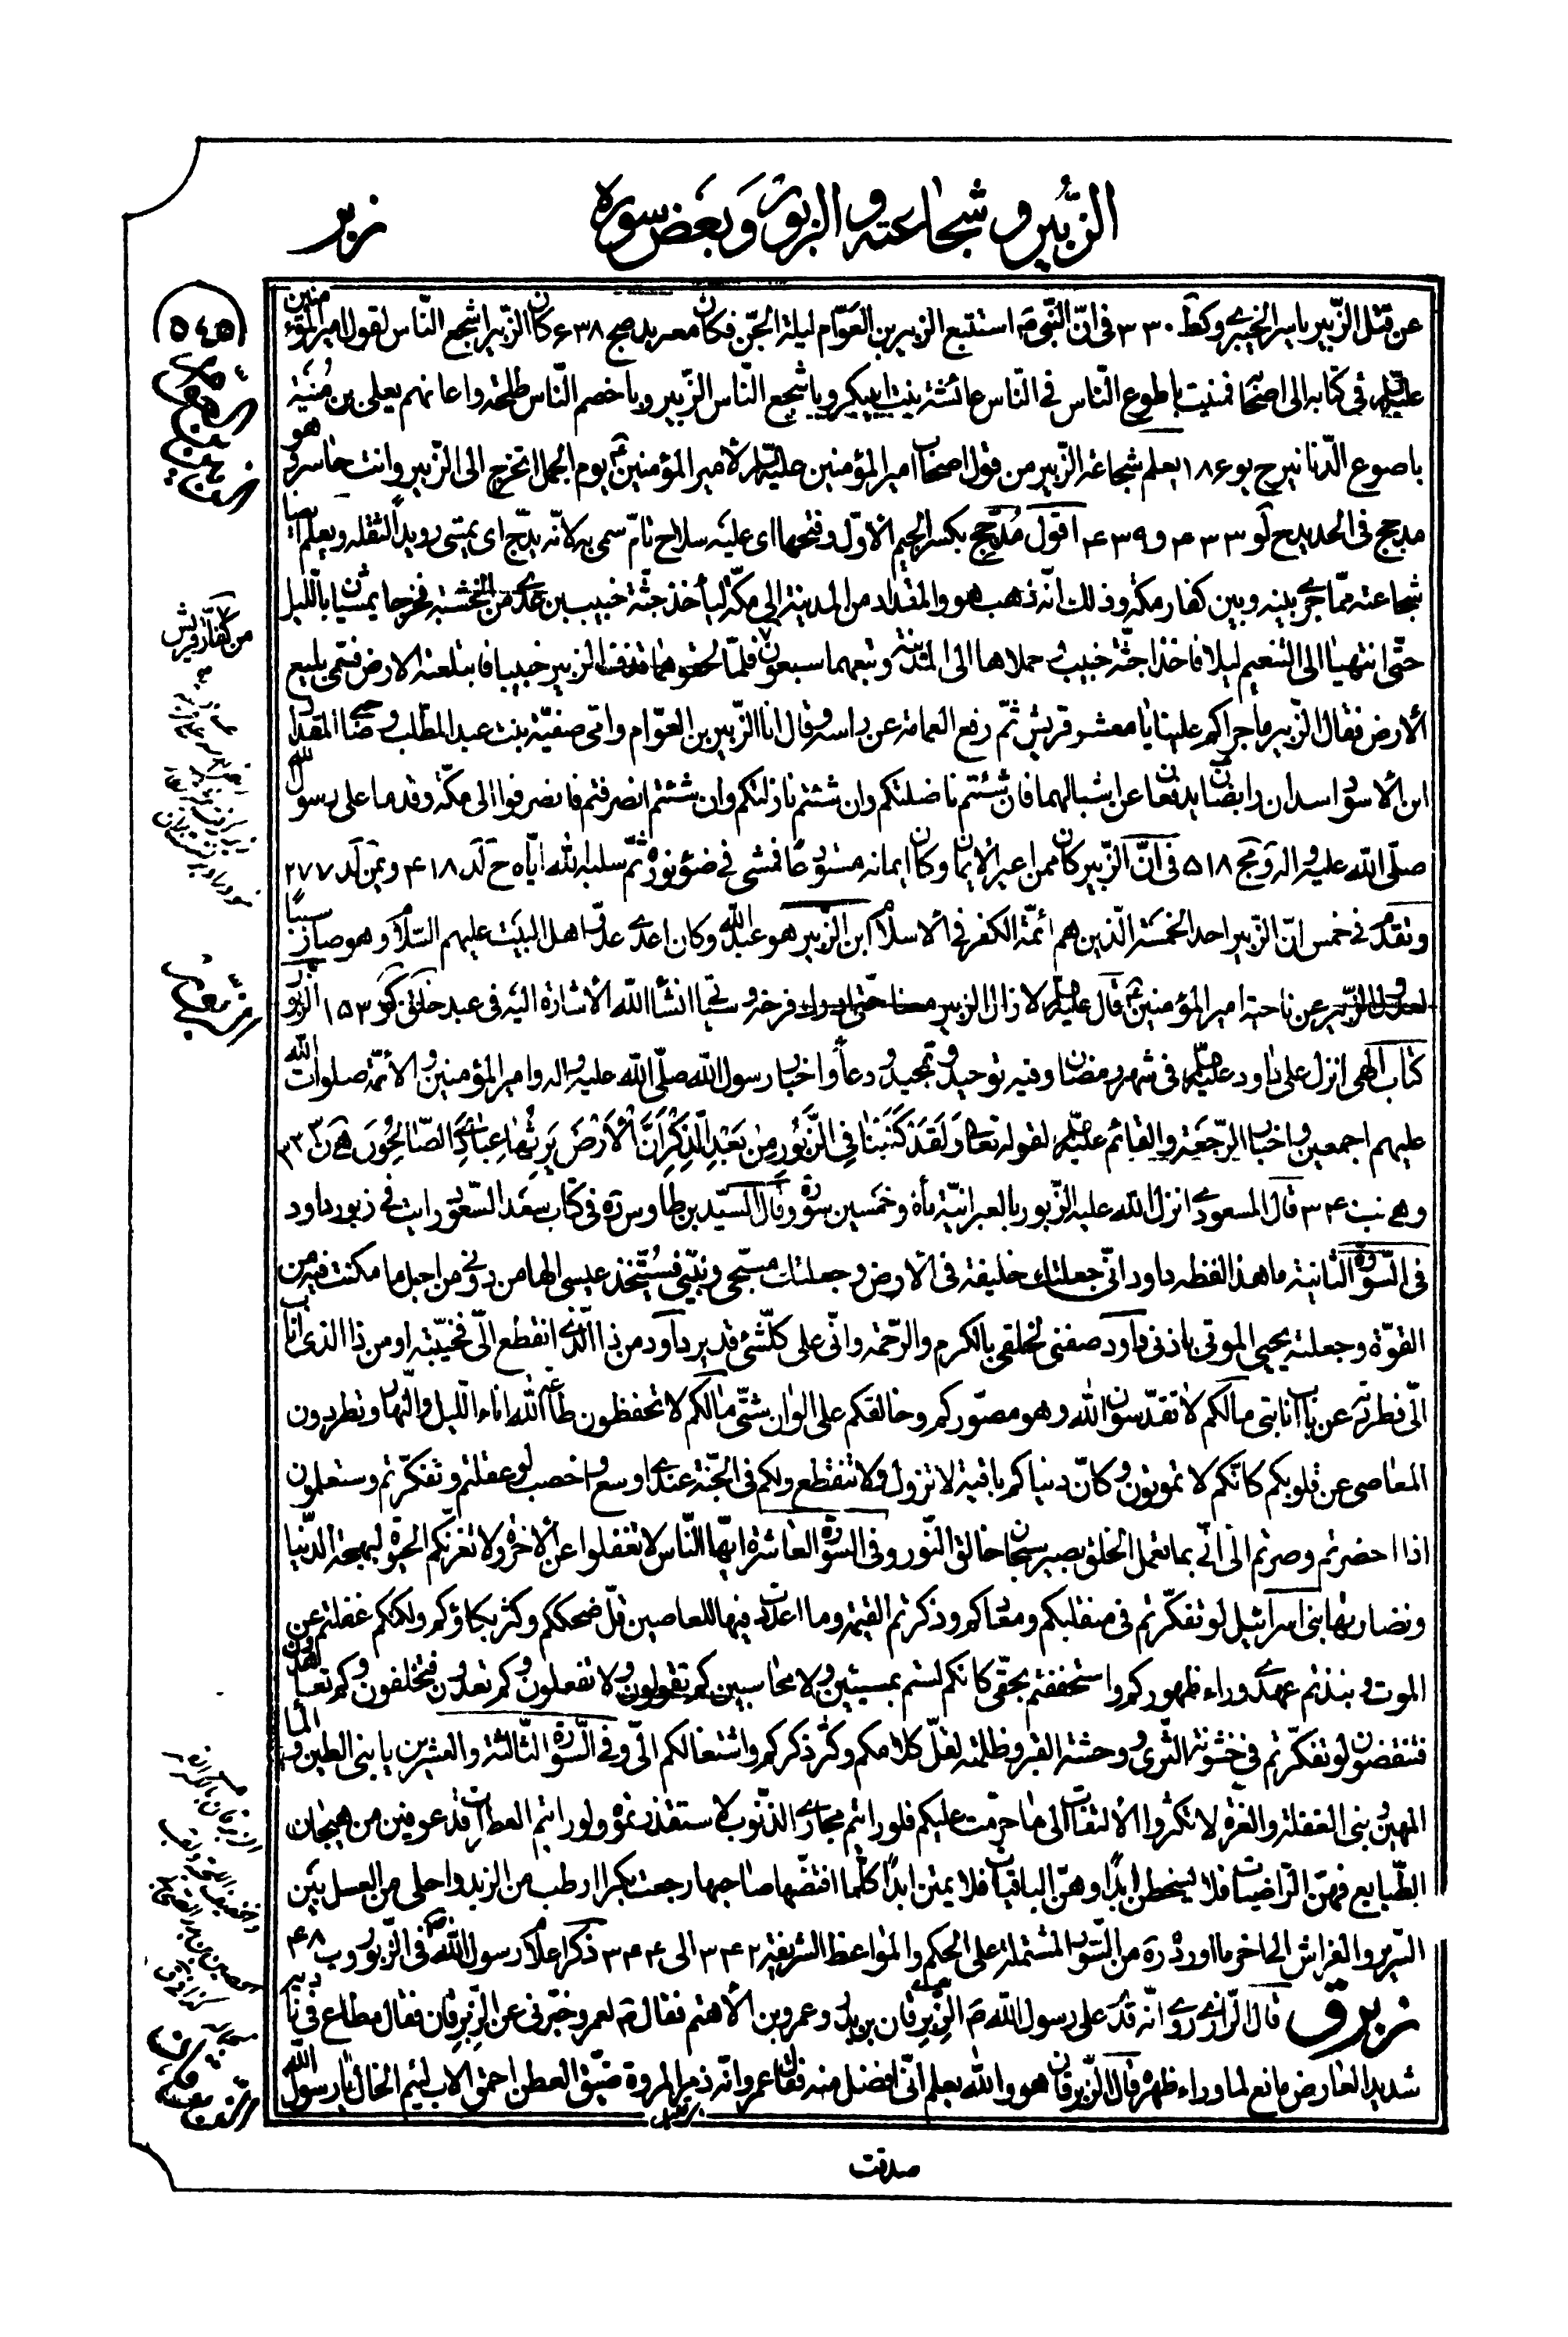 الزبير و شجاعته و الزبور و بعض سوره
زبر
٥٤٥
عن قتل الزّبير ياسر الخيبري و كط ٣٣٠ فى انّ النّبى ص استتبع الزبير بن العوّام ليلة الجنّ فكان معه يد صج ٦٣٨ كان الزّبير اشجع النّاس لقول امير المؤمنين
عليه السلم فى كتابه الى اصحابه فمنيت باطوع النّاس فى النّاس عائشة بنت ابيبكر و باشجع النّاس الزّبير و باخصم النّاس طلحة و اعانهم يعلى بن مُنيَة
باصوع الدّنانير ح يو ١٨٦ يعلم شجاعة الزبير من قول اصحاب امير المؤمنين عليه السلم لأمير المؤمنين ع يوم الجمل اتخرج الى الزّبير و انت حاسر و هو
مدجج فى الحديد ح لو ٤٣٣ و ٤٣٩ اقول مُدَجّج بكسر الجيم الأوّل و فتحها اى عليه سلاح تامّ سمى به لانّه يدّج اى يمشى رويداً لثقله و يعلم ايضا
شجاعته ممّا جرى بينه و بين كفار مكه و ذلك انّه ذهب هو و المقداد من المدينة الى مكّة ليأخذ جثّة خبيب بن عدى من الخشبة فخرجا يمشيان باللّيل
حتّى انتهيا الى التنعيم ليلا فاخذا جثّة خبيب و حملاها الى المدينة و تبعهما سبعون فلمّا لحقوهما قذف الزبير خبيبا فابتلعته الارض فسمّى بليع
الأرض فقال الزّبير ما جراكم علينا يا معشر قريش ثمّ رفع العمامة عن راسه و قال انا الزّبير بن العوّام و امّى صفيّة بنت عبد المطّلب و صاحبى المقداد
ابن الأسود اسدان رابضان يدفعان عن اشبالهما فان شئتم ناضلتكم و ان شئتم نازلتكم و ان شئتم انصرفتم فانصرفوا الى مكّة و قدما على رسول الله
صلّى الله عليه و اله و مج ٥١٨ فى انّ الزّبير كان ممن اعير الايمان و كان ايمانه مستودعًا فمشى فى ضوء نوره ثمّ سلبه الله ايّاه ح لد ٤١٨ و يمن لد ٢٧٧
و تقدّم فى خمس انّ الزّبير احد الخمسة الّذين هم ائمّة الكفر فى الأسلام ابن الزّبير هو عبد الله و كان اعدى عدوّ اهل البيت عليهم السّلام و هو صار سببًا
لعدول الزّبير عن ناحية امير المؤمنين ع قال عليه السلم لا زال الزبير معنا حتى ادرك فرخه و ستاتى انشاالله الأشارة اليه فى عبد خلق كو ١٥٣ الزبور
كتاب الهى انزل على داود عليه السلم فى شهر رمضان و فيه توحيد و تمجيد و دعاء و اخبار رسول الله صلّى الله عليه و اله و امير المؤمنين و الأئمّة صلوات الله
عليهم اجمعين و اخبار الرّجعة و القائم عليه السلم لقوله تعالى وَلَقَدْ كَتَبْنَا فِى الزَّبُورِ مِنْ بَعْدِ الذِّكْرِ اَنَّ الْأَرْضَ يَرِثُهَا عِبَادِىَ الصَّالِحُونَ
٣٤ قال المسعودى انزل الله عليه الزّبور بالعبرانيّة مأة و خمسين سورة و قال السيّد بن طاوس ره فى كتاب سعد السّعود رايت فى زبور داود
فى السّورة الثانية ما هذا لفظه داود انّى جعلتك خليفة فى الأرض و جعلتك مسبّحى و نبيّى فسيُتّخذ عيسى الها من دونى من اجل ما مكنت فيه من
القوّة و جعلته يحيى الموتى باذنى داود صفنى لخلقى بالكرم و الرّحمة و انّى على كلّشئ قدير داود من ذا الّذى انقطع الىّ فخيّبته او من ذا الذى اناب
الىّ فطردته عن باب انابتى مالكم لا تقدّسون الله و هو مصوّركم و خالقكم على الوان شتّى مالكم لا تحفظون طاعة الله اناء اللّيل و النّهار و تطردون
المعاصى عن قلوبكم كانّكم لا تموتون و كانّ دنياكم باقية لا تزول و لا تنقطع و لكم فى الجنّة عندى اوسع و اخصب لو عقلتم و تفكّرتم و ستعلمون
اذا احضرتم و صرتم الىّ انّى بما يعمل الخلق بصير سبحان خالق النّور و فى السّورة العاشرة ايّها النّاس لا تغفلوا عن الأخرة و لا تغرّنّكم الحيوة لبهجة الدّنيا
و نضارتها بنى اسرائيل لو تفكّرتم فى منقلبكم و معادكم و ذكرتم القيمة و ما اعددت فيها للعاصين قلّ ضحككم و كثر بكاؤكم و لكنّكم غفلتم عن
الموت و نبذتم عهدى وراء ظهوركم و استخففتم بحقّى كانكم لستم بمسيئين و لا محاسبين كم تقولون و لا تفعلون و كم تعدون فتخلفون و كم تعاهدون
فتنقضون لو تفكّرتم فى خشونة الثّرى و وحشة القبر و ظلمته لقلّ كلامكم و كثر ذكركم و اشتغالكم الىّ و فى السّورة الثّالثة و العشرين يا بنى الطين و الماء
المهين و بنى الغفلة و الغرة لا تكثروا الألتفات الى ما حرّمت عليكم فلو رايتم مجارى الذّنوب لاستقذرتموه و لو رايتم العطرات قد عوفين من هيجان
الطّبايع فهنّ الرّاضيات فلا يسخطن ابدًا و هنّ الباقيات فلا يمتن ابدًا كلّما افتضّها صاحبها رجعت بكرا ارطب من الزبد و احلى من العسل بين
السّرير و الفراش الى اخر ما اورده ره من السّور المشتملة على الحكم و المواعظ الشّريفة ٣٤٢ الى ٣٤٤ ذكر اعلام رسول الله ص فى الزّبور و ب ٤٨
زبرق قال الرّازى روى انّه قدم على رسول الله ص الزّبرقان بن بدر و عمرو بن الأهتم فقال ص لعمرو خبّرنى عن الزّبرقان فقال مطاع فى ناديه
شديد العارض مانع لما وراء ظهره قال الزّبرقان هو و الله يعلم انّى افضل منه فقال عمرو انّه زمر المروة ضيّق العطن احمق الاب لئيم الخال يا رسول الله
من كفار قريش
صدقت